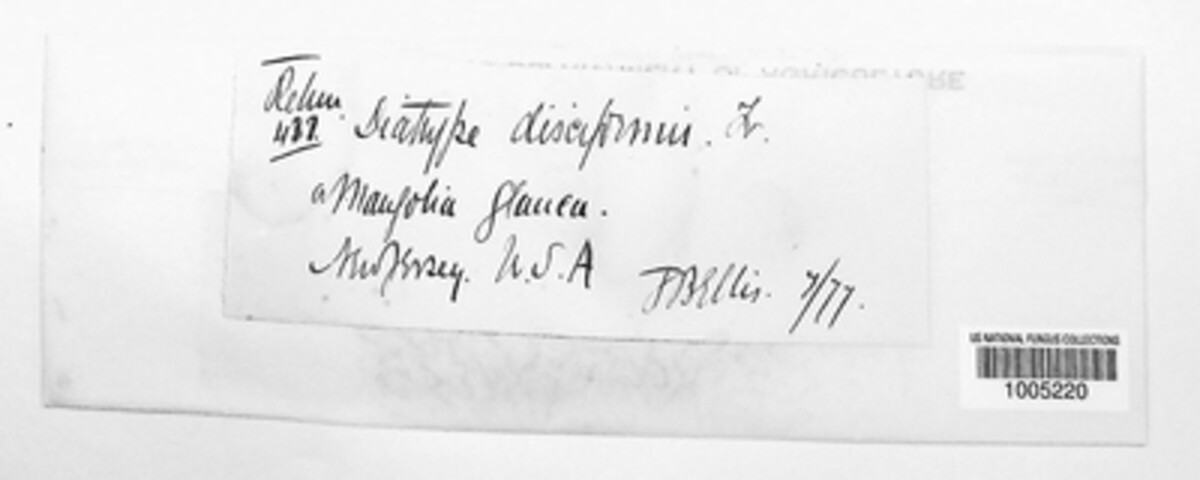 Rehm
Diatrype disciformis. Fr.
a Mangolia glauca.
New Jersey. U.S.A
JBEllis. 7/77.
US NATIONAL FUNGUS COLLECTIONS
1005220